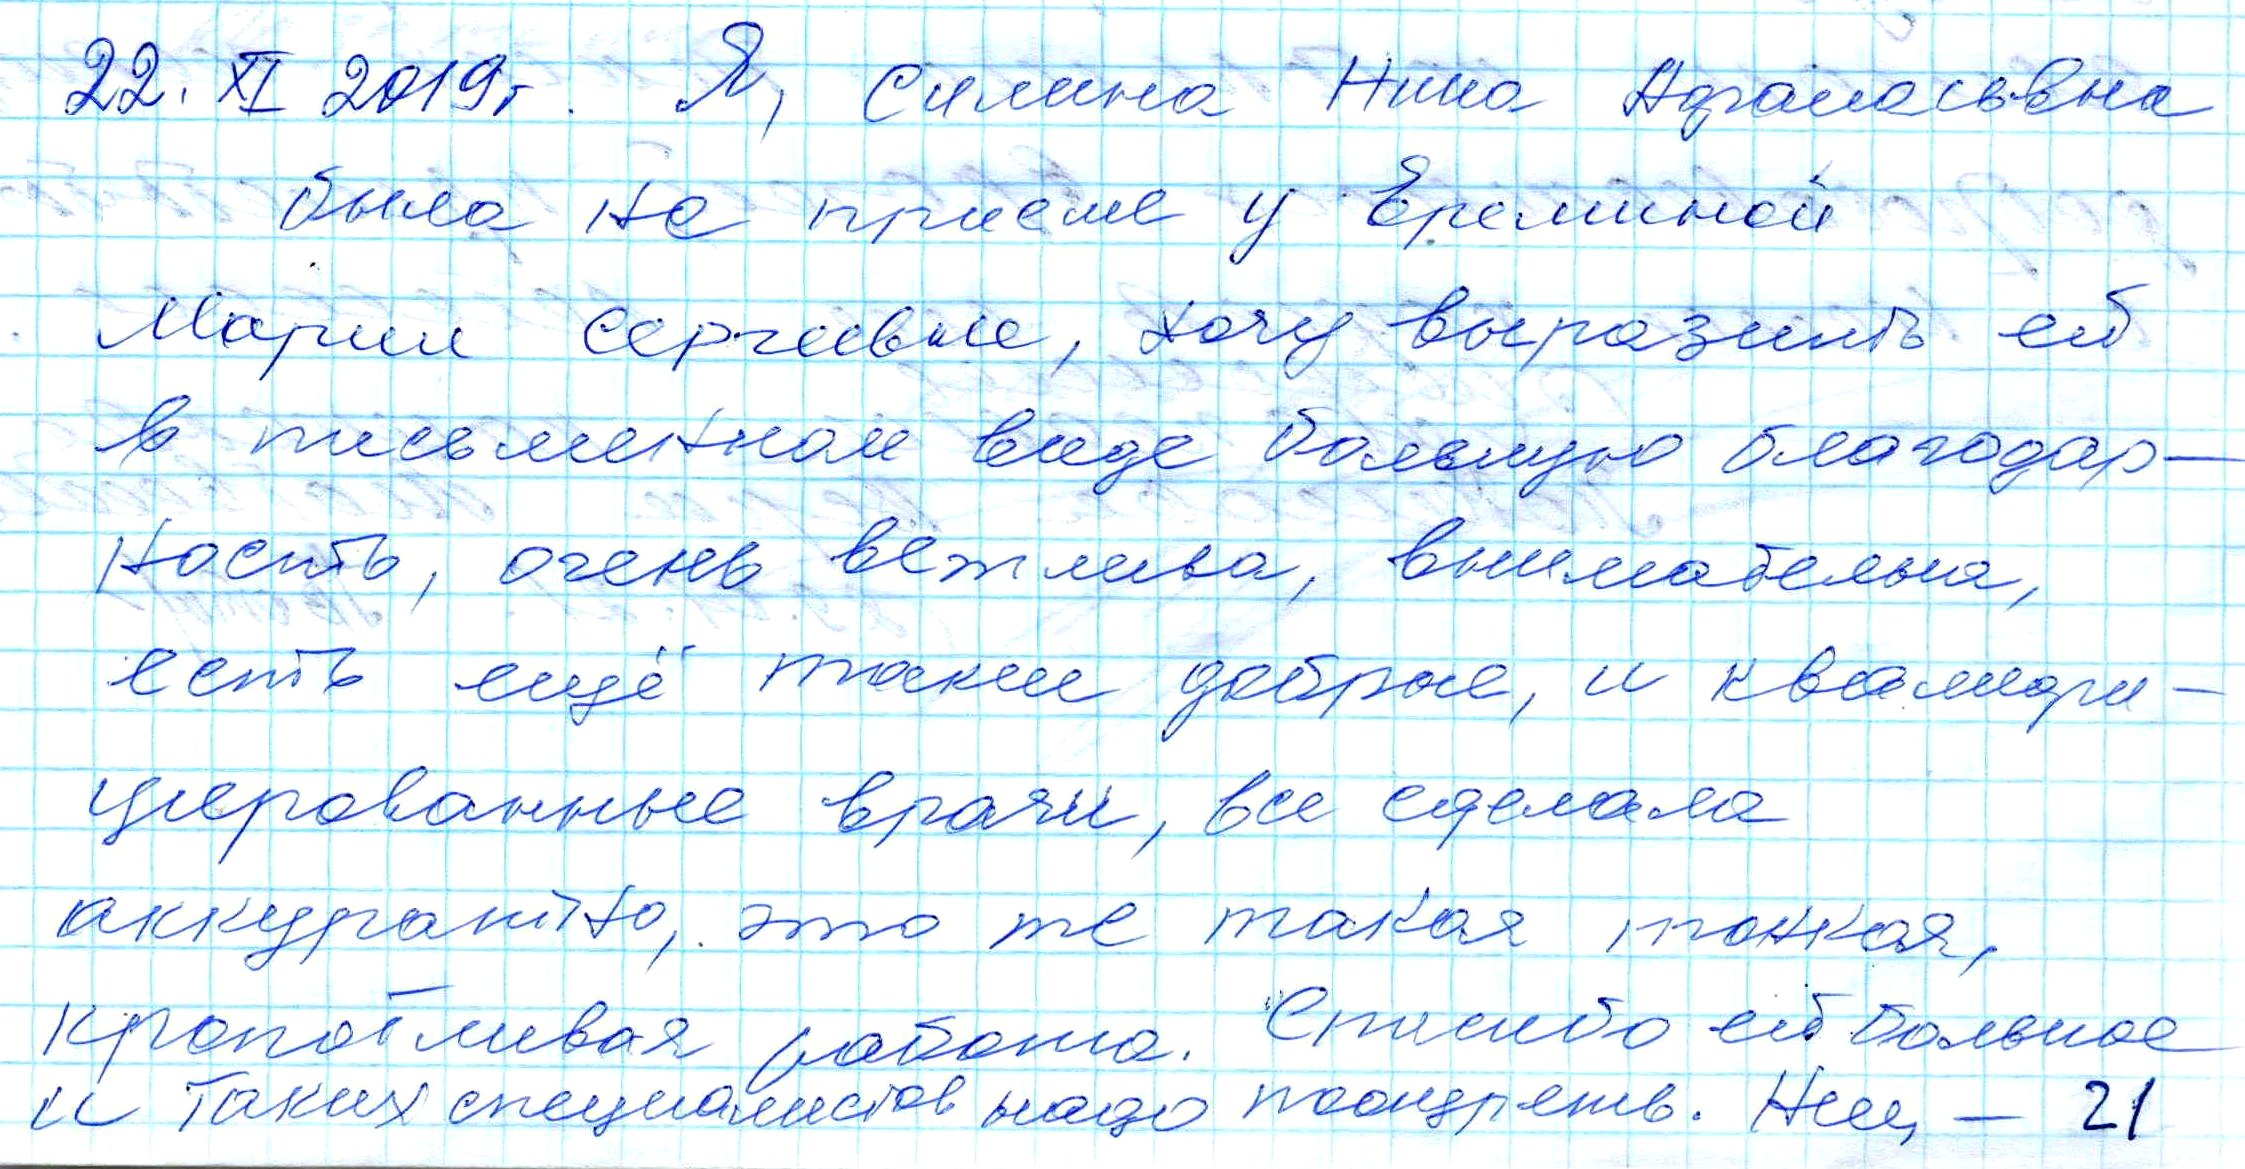 22. XI 2019г. Я, Силина Нина Афанасьевна
была на приеме у Ереминой
Марии Сергеевне, хочу выразить ей
в письменном виде большую благодар-
ность, очень вежлива, внимательна,
есть ещё такие добрые, и квалифи-
цированные врачи, все сделала
аккуратно, это же такая тонкая,
кропотливая работа. Спасибо ей большое
и таких специалистов надо поощрять. – 21